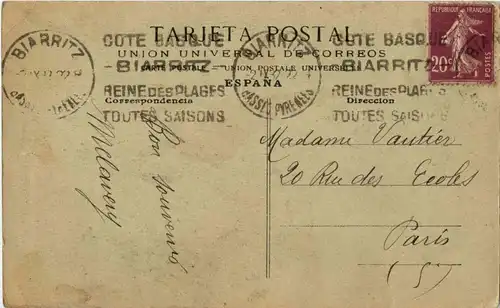 TARJETA POSTAL
UNION UNIVERSAL DE CORREOS
CARTE POSTALE — UNION POSTALE UNIVERSELLE
ESPAÑA
Correspondencia
Direccion
BIARRITZ
COTE BASQUE
-BIARRITZ-
REINE DES PLAGES
TOUTES SAISONS
BIARRITZ
BASSES PYRENEES
COTE BASQUE
BIARRITZ
REINE DES PLAGES
TOUTES SAISONS
REPUBLIQUE FRANÇAISE
20c
POSTES
Bon souvenir
Madame Vautier
20 Rue des Ecoles
Paris
(5)